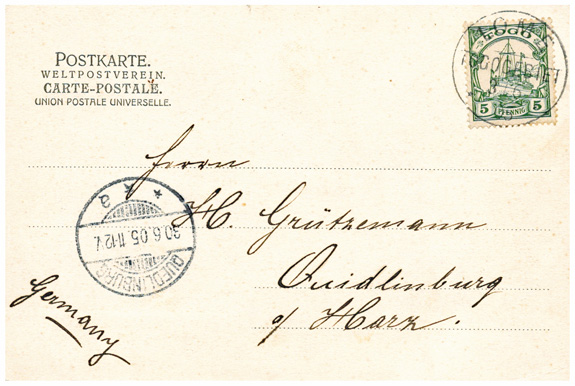 POSTKARTE.
WELTPOSTVEREIN.
CARTE-POSTALE.
UNION POSTALE UNIVERSELLE.
TOGO
5 PFENNIG 5
LOME
Herrn
H. Grützemann
Quidlinburg
a/ Harz.
Germany
QUEDLINBURG
30.6.05. 11-12 V.
* a